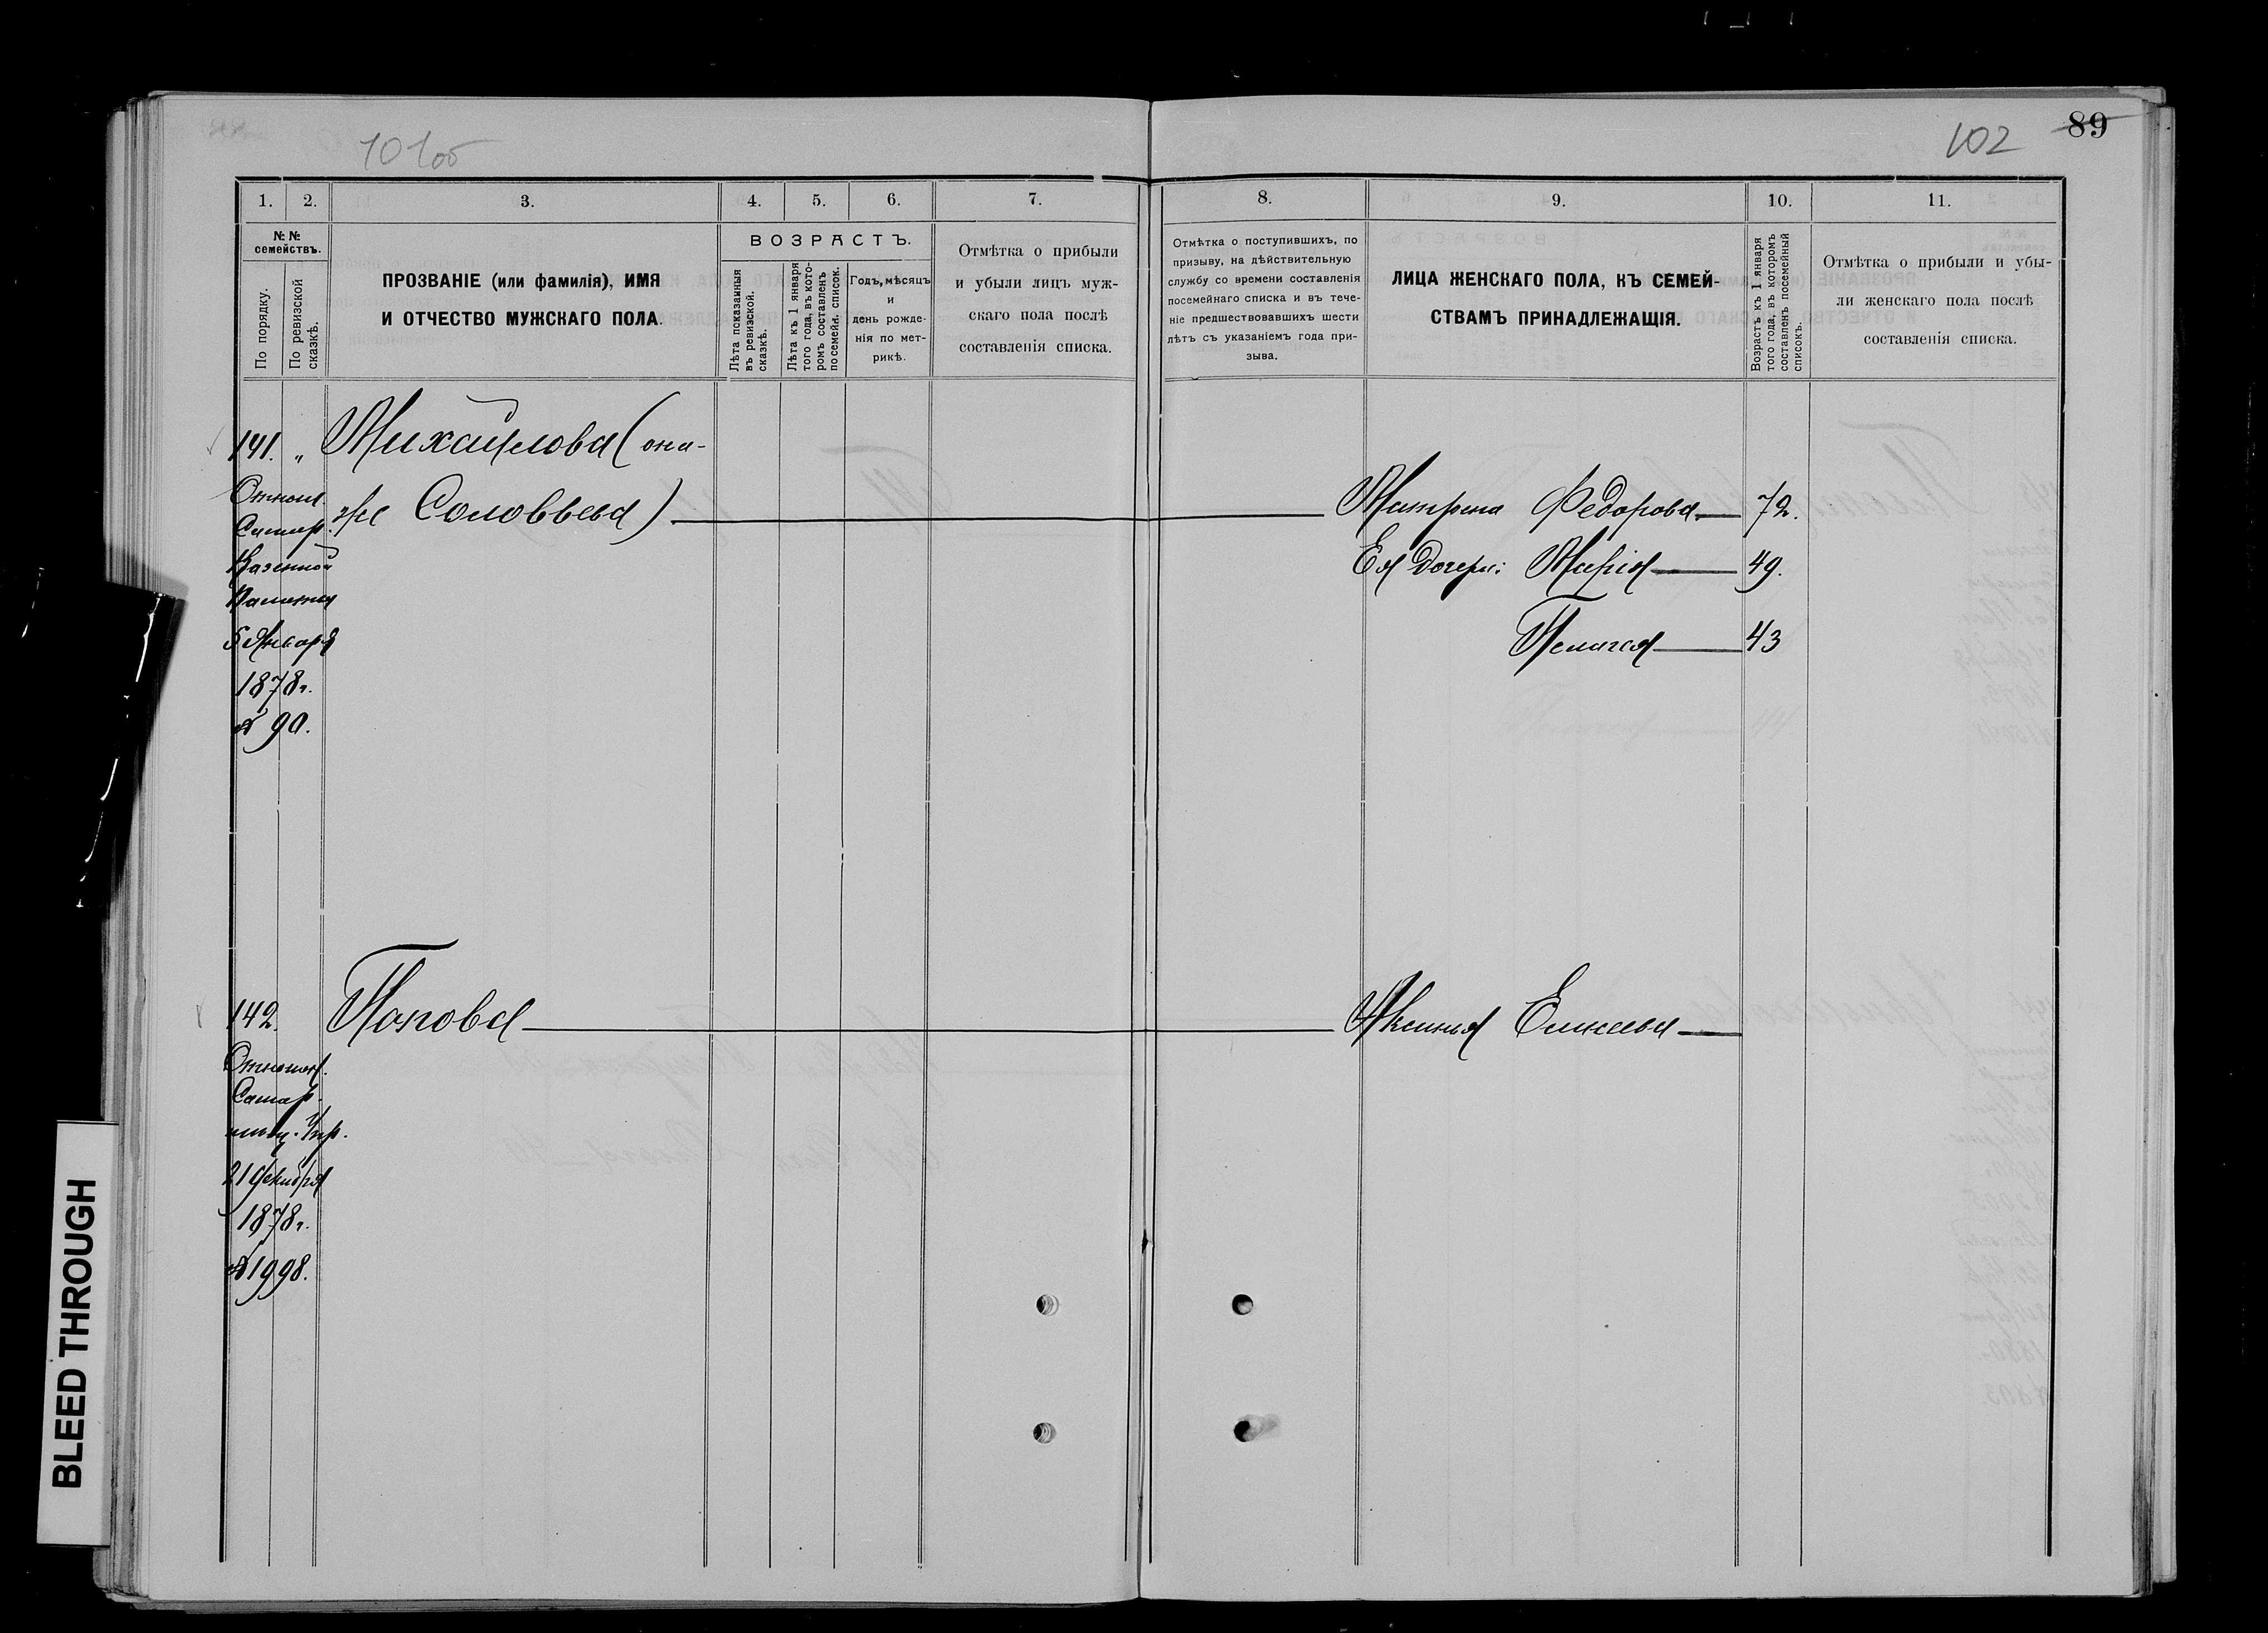 101об
102 89
1. 2. 3. 4. 5. 6. 7. 8. 9. 10. 11.
№ №
семействъ.
По порядку.
По ревизской
сказкѣ.
ПРОЗВАНІЕ (или фамилія), ИМЯ
И ОТЧЕСТВО МУЖСКАГО ПОЛА.
ВОЗРАСТЪ.
Лѣта показанныя
въ ревизской.
сказкѣ.
Лѣта къ 1 января
того года, въ кото-
ромъ составленъ
посемейн. список.
Годъ, мѣсяцъ
и
день рожде-
нія по мет-
рикѣ.
Отмѣтка о прибыли
и убыли лицъ муж-
скаго пола послѣ
составленія списка.
Отмѣтка о поступившихъ, по
призыву, на дѣйствительную
службу со времени составленія
посемейнаго списка и въ тече-
ніе предшествовавшихъ шести
лѣтъ съ указаніемъ года при-
зыва.
ЛИЦА ЖЕНСКАГО ПОЛА, КЪ СЕМЕЙ-
СТВАМЪ ПРИНАДЛЕЖАЩІЯ.
Возрастъ къ 1 января
того года, въ которомъ
составленъ посемейный
списокъ.
Отмѣтка о прибыли и убы-
ли женскаго пола послѣ
составленія списка.
141. „ Михайлова (она-
же Соловьева) Матрена Федорова 72.
Ея дочери: Марія 49.
Пелагея 43
Отнош.
Самар.
Казенной
Палаты
5 Января
1878 г.
№ 90.
142. Попова Аксинья Елисеева
Отношен.
Самар.
мѣщ. Упр.
21 декабря
1878 г.
№ 1998.
BLEED THROUGH